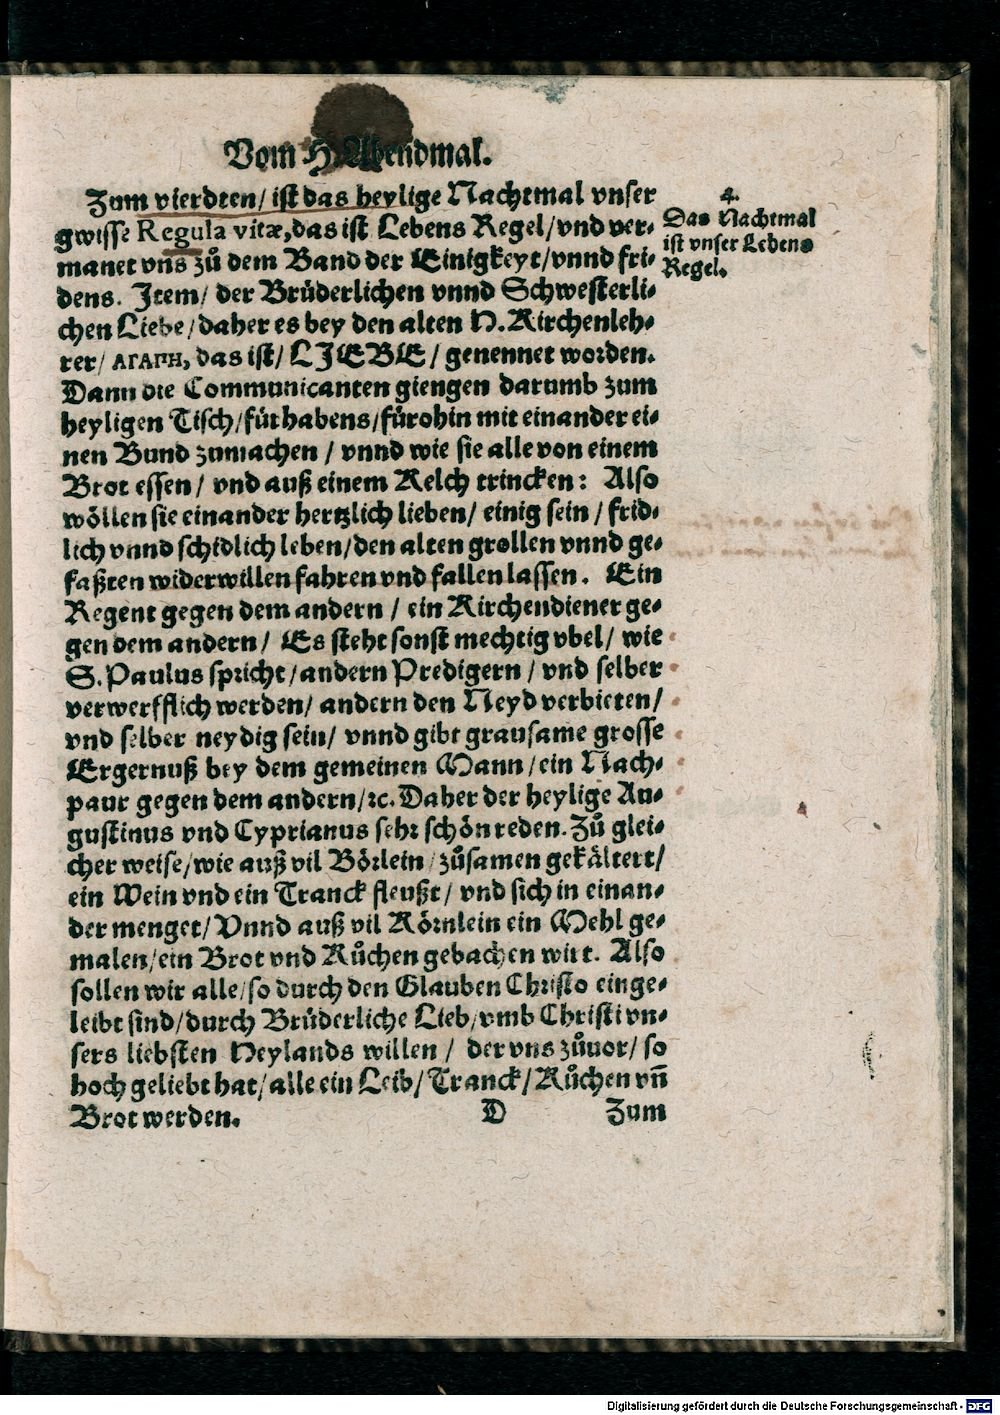 Vom H. Abendmal.
Zum vierdten/ ist das heylige Nachtmal vnser
gwisse Regula vitæ, das ist Lebens Regel/ vnd ver-
manet vns zů dem Band der Einigkeyt/ vnnd fri-
dens. Item/ der Brüderlichen vnnd Schwesterli-
chen Liebe/ daher es bey den alten H. Kirchenleh-
rer/ ΑΓΑΠΗ, das ist/ LIEBE/ genennet worden.
Dann die Communicanten giengen darumb zum
heyligen Tisch/ fürhabens/ fürohin mit einander ei-
nen Bund zumachen/ vnnd wie sie alle von einem
Brot essen/ vnd auß einem Kelch trincken: Also
wöllen sie einander hertzlich lieben/ einig sein/ frid-
lich vnnd schidlich leben/ den alten grollen vnnd ge-
faßten widerwillen fahren vnd fallen lassen. Ein
Regent gegen dem andern/ ein Kirchendiener ge-
gen dem andern/ Es steht sonst mechtig vbel/ wie
S. Paulus spricht/ andern Predigern/ vnd selber
verwerfflich werden/ andern den Neyd verbieten/
vnd selber neydig sein/ vnnd gibt grausame grosse
Ergernuß bey dem gemeinen Mann/ ein Nach-
paur gegen dem andern/ ꝛc. Daher der heylige Au-
gustinus vnd Cyprianus sehr schön reden. Zů glei-
cher weise/ wie auß vil Börlein/ zůsamen gekältert/
ein Wein vnd ein Tranck fleußt/ vnd sich in einan-
der menget/ Vnnd auß vil Körnlein ein Mehl ge-
malen/ ein Brot vnd Kůchen gebachen wirt. Also
sollen wir alle/ so durch den Glauben Christo einge-
leibt sind/ durch Brüderliche Lieb/ vmb Christi vn-
sers liebsten Heylands willen/ der vns zůuor/ so
hoch geliebt hat/ alle ein Leib/ Tranck/ Kůchen vn̄
Brot werden.
D Zum
4.
Das Nachtmal
ist vnser Lebens
Regel.
Digitalisierung gefördert durch die Deutsche Forschungsgemeinschaft - DFG